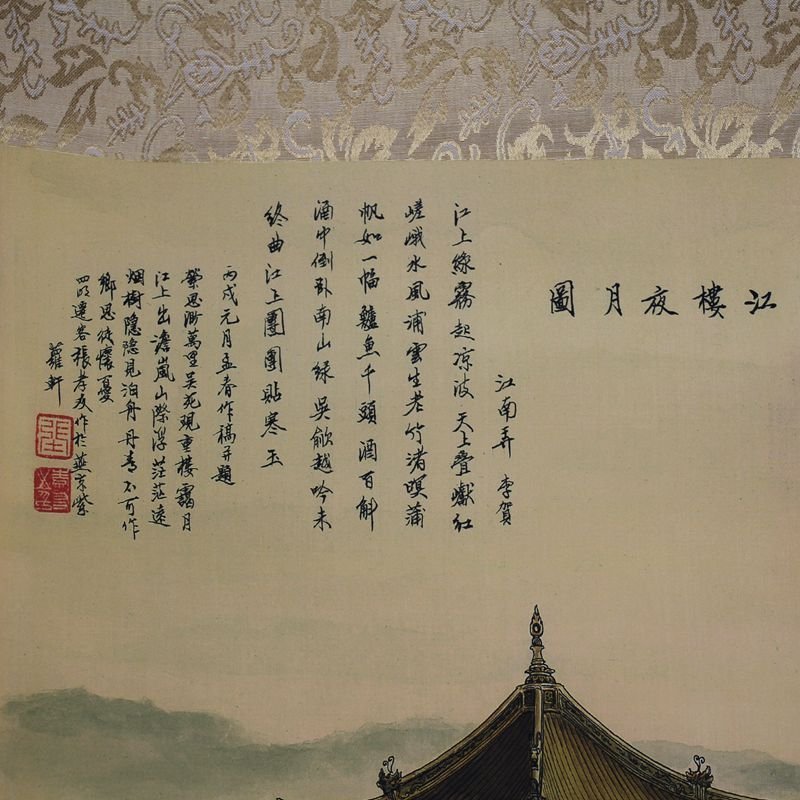 江樓夜月圖
江南弄 李賀
江上綠霧起涼波 天上疊巘紅
嵯峨水風浦雲生老竹渚暝蒲
帆如一幅鱸魚千頭酒百斛
酒中倒臥南山綠 吳歈越吟未
終曲 江上團團貼寒玉
丙戌元月孟春作稿並題
縈思渺萬里吳苑現重樓靄月
江上出澹嵐山際浮茫茫遠
烟樹隱隱見泊舟丹青不可作
鄉思徒懷憂
四明遠客張孝友作於燕京紫
蘿軒